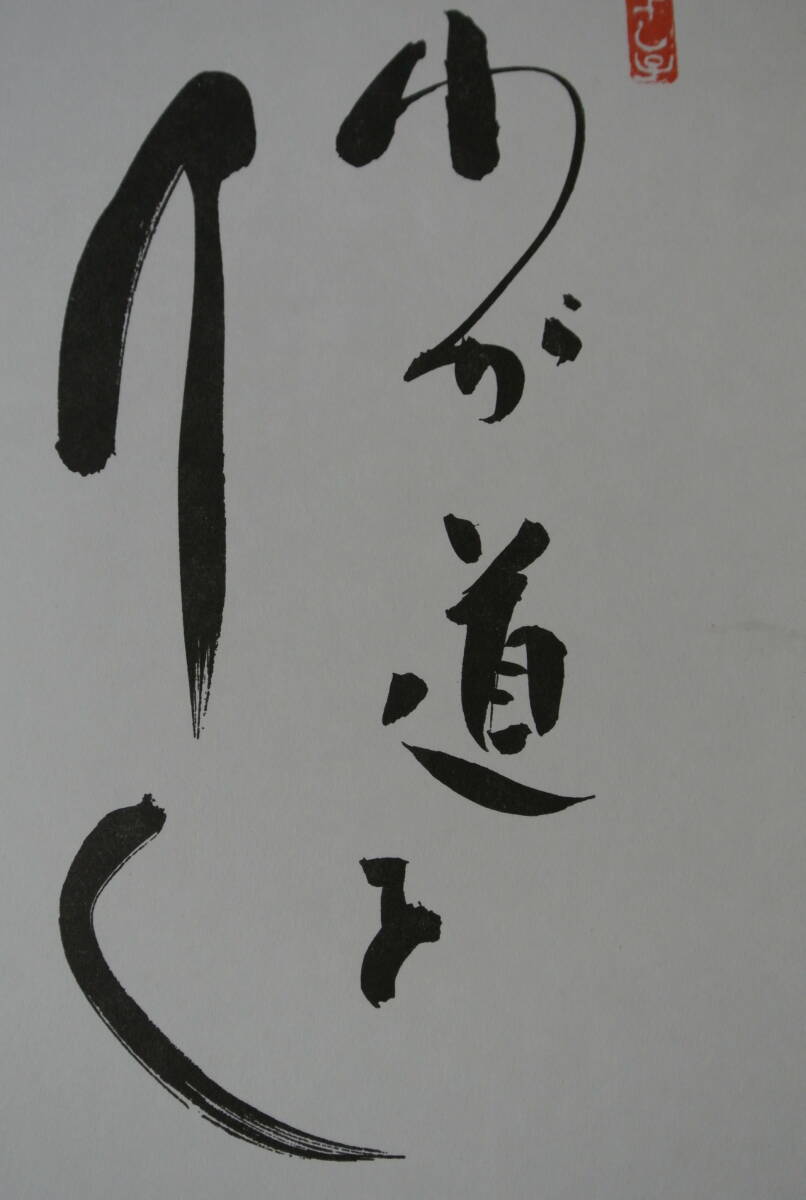 わが道を
行く